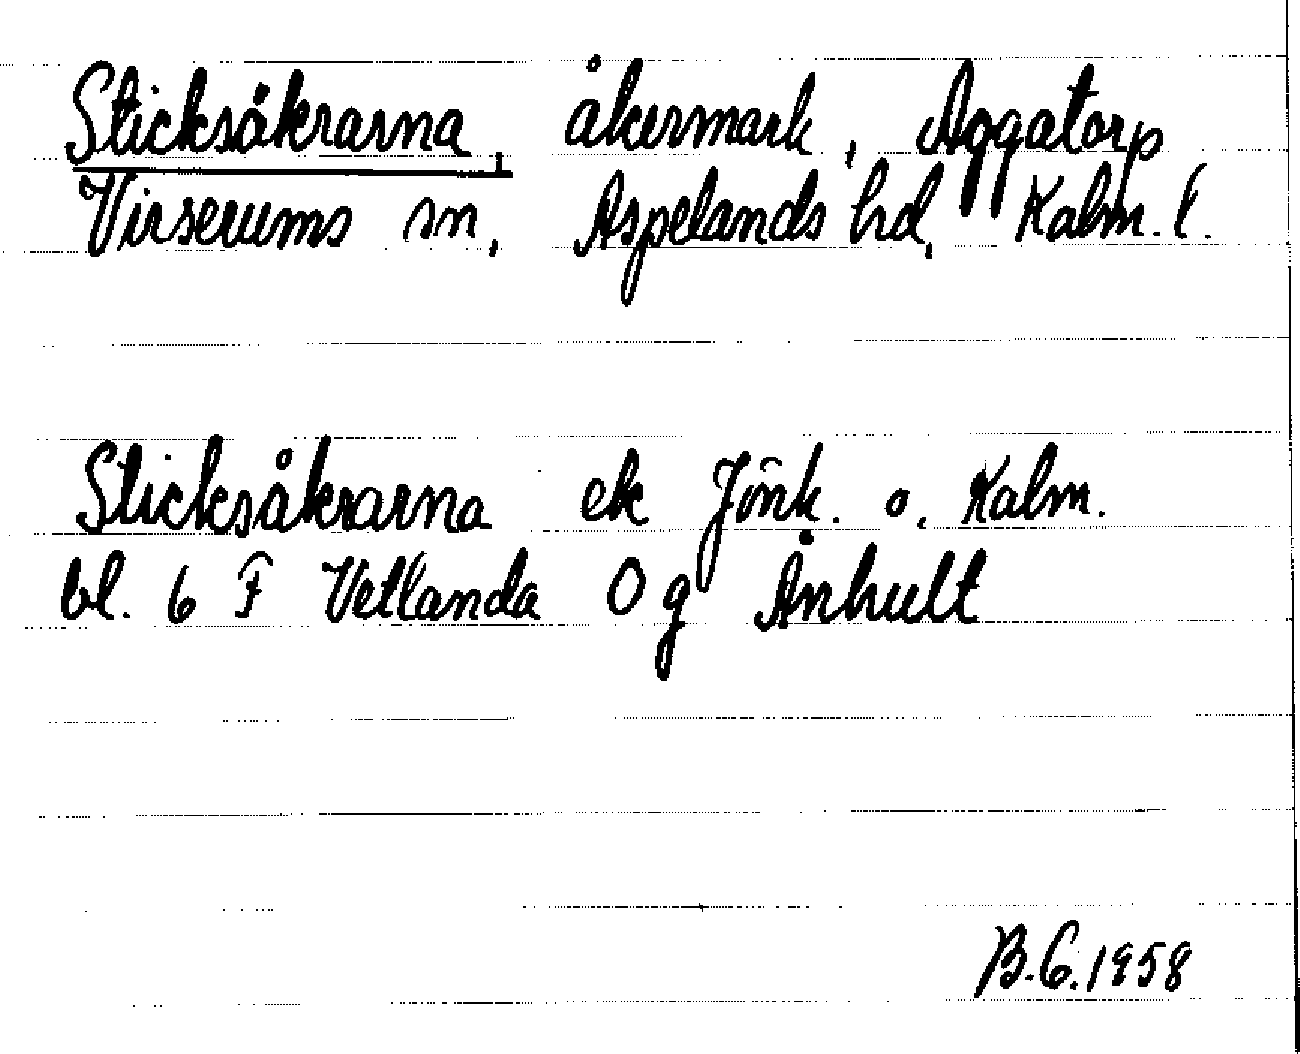 Sticksåkrarna, åkermark, Aggatorp
Virserums sn, Aspelands hd, Kalm. l.
Sticksåkrarna ek Jönk. o. Kalm.
bl. 6 F Vetlanda O g Ånhult
B.G. 1958